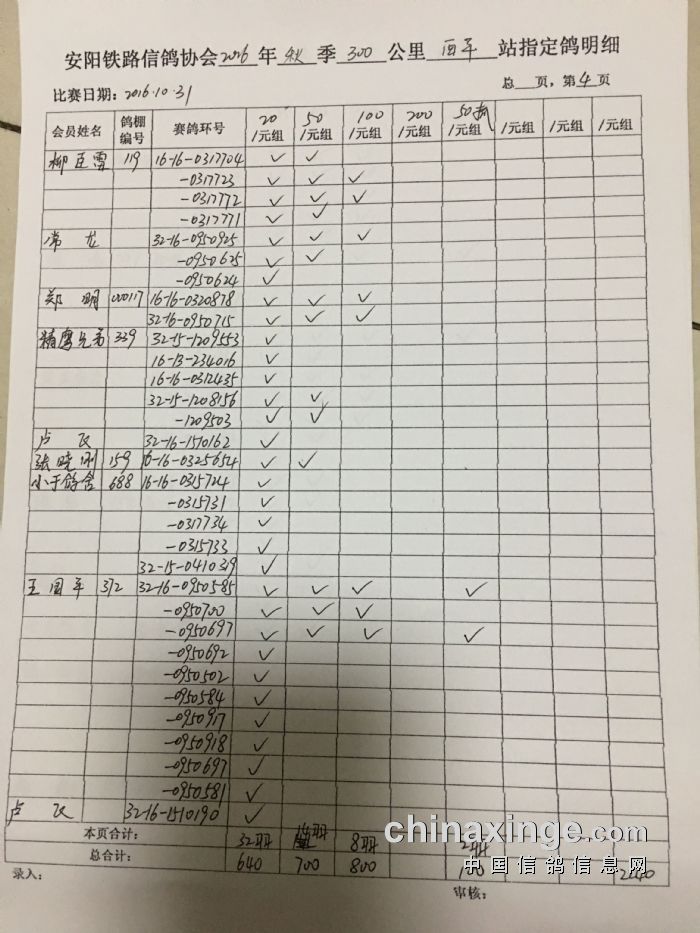 安阳铁路信鸽协会2016年秋季300公里站指定鸽明细
比赛日期：2016.10.31 总 页，第4页
会员姓名 鸽棚编号 赛鸽环号 20/元组 50/元组 100/元组 200/元组 50/元组 /元组 /元组 /元组
柳臣雷 119 16-16-0317704 ✓ ✓
-0317723 ✓ ✓ ✓
-0317772 ✓ ✓ ✓
-0317771 ✓ ✓
常龙 32-16-0950925 ✓ ✓ ✓
-0950625 ✓ ✓
-0950624 ✓
郑明 000117 16-16-0320878 ✓ ✓ ✓
32-16-0950715 ✓ ✓ ✓
精鹰兄弟 339 32-15-1209553 ✓
16-13-234016 ✓
16-16-0312435 ✓
32-15-1208156 ✓ ✓
-1209503 ✓ ✓
卢 32-16-1510162 ✓
张晓 159 16-16-0325654 ✓ ✓
小于鸽舍 688 16-16-0315724 ✓
-0315731 ✓
-0317734 ✓
-0315733 ✓
32-15-0410319 ✓
王国平 372 32-16-0950585 ✓ ✓ ✓ ✓
-0950700 ✓ ✓ ✓
-0950697 ✓ ✓ ✓ ✓
-0950692 ✓
-0950502 ✓
-0950584 ✓
-0950917 ✓
-0950918 ✓
-0950697 ✓
-0950581 ✓
卢 32-16-1510190 ✓
本页合计： 32羽 14羽 8羽 2羽
总合计： 640 700 800 100 2240
录入： 审核：
chinaxinge.com
中国信鸽信息网